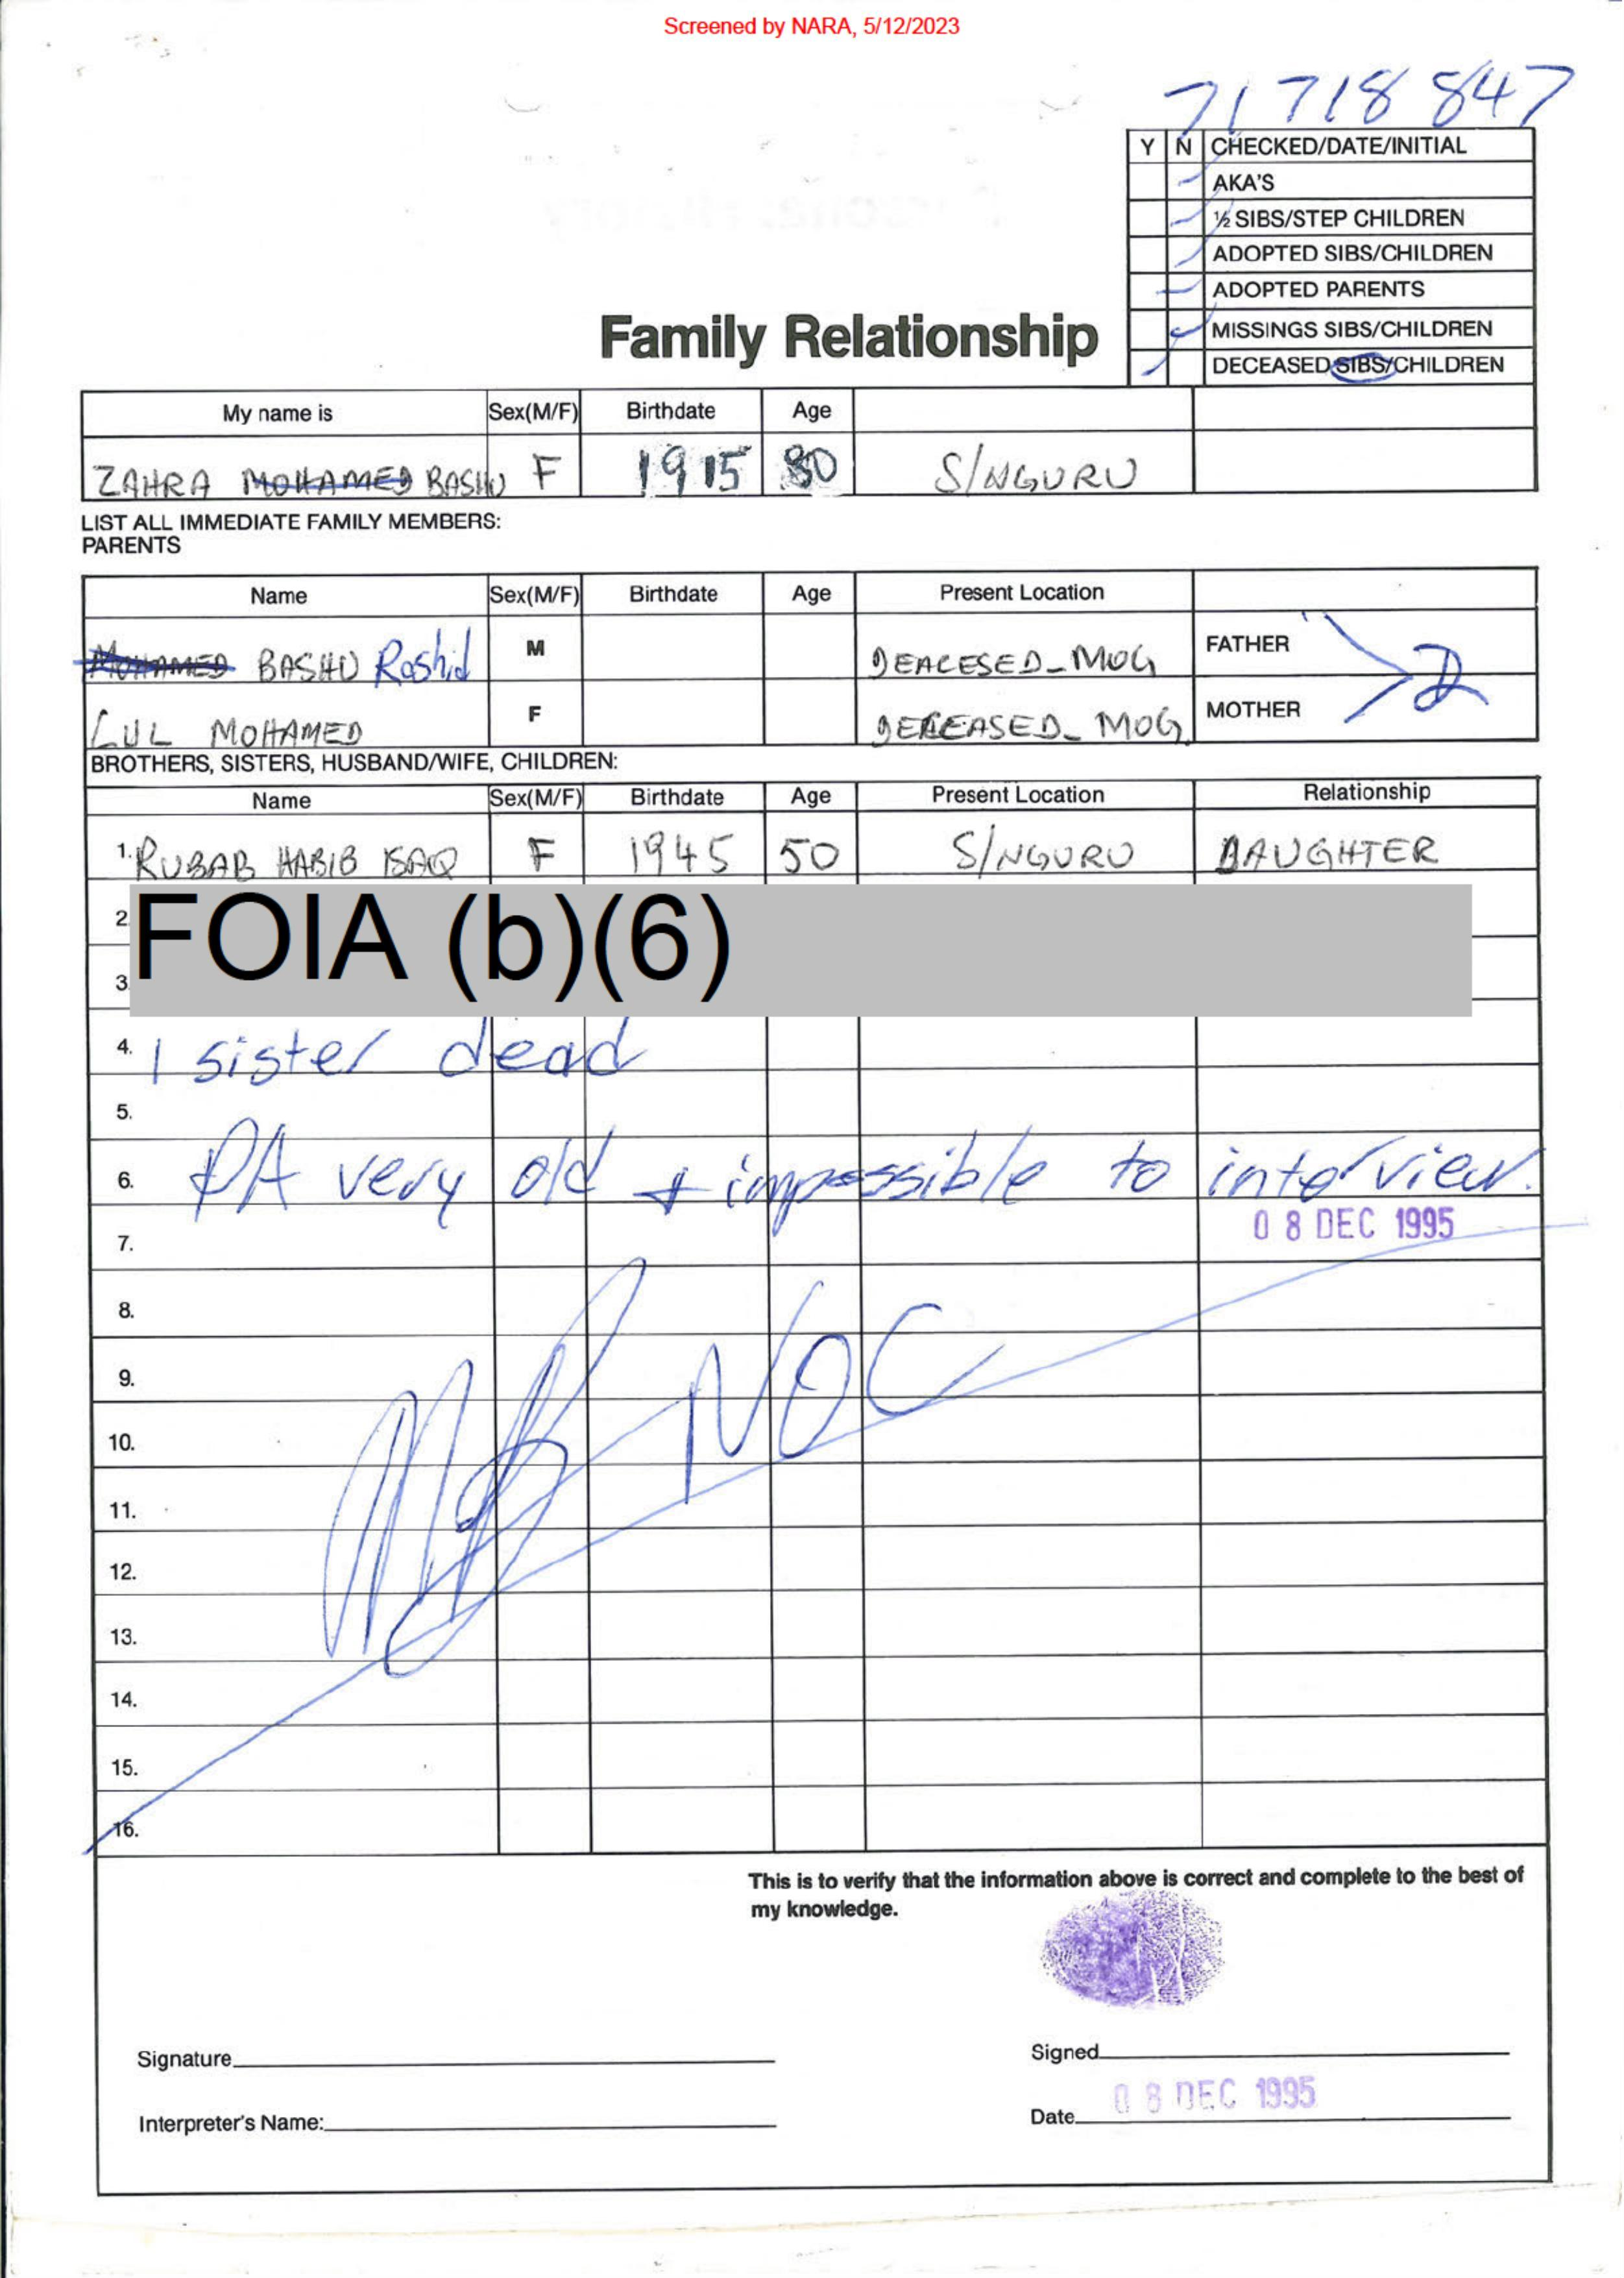 Screened by NARA, 5/12/2023
71 718 847
Y N CHECKED/DATE/INITIAL
AKA'S
½ SIBS/STEP CHILDREN
ADOPTED SIBS/CHILDREN
ADOPTED PARENTS
MISSINGS SIBS/CHILDREN
DECEASED SIBS/CHILDREN
Family Relationship
My name is Sex(M/F) Birthdate Age
ZAHRA MOHAMED BASHU F 1915 80 S/NGURU
LIST ALL IMMEDIATE FAMILY MEMBERS:
PARENTS
Name Sex(M/F) Birthdate Age Present Location
MOHAMED BASHU Rashid M DEACESED_MOG FATHER
LUL MOHAMED F DECEASED_ MOG MOTHER
D
BROTHERS, SISTERS, HUSBAND/WIFE, CHILDREN:
Name Sex(M/F) Birthdate Age Present Location Relationship
1. RUBAB HABIB ISAQ F 1945 50 S/NGURU DAUGHTER
2
FOIA (b)(6)
3
4. 1 sister dead
5.
6. PA very old + impossible to interview.
7. 08 DEC 1995
8.
NOC
9.
10.
11.
12.
13.
14.
15.
16.
This is to verify that the information above is correct and complete to the best of
my knowledge.
Signature Signed
Interpreter's Name: Date 08 DEC 1995